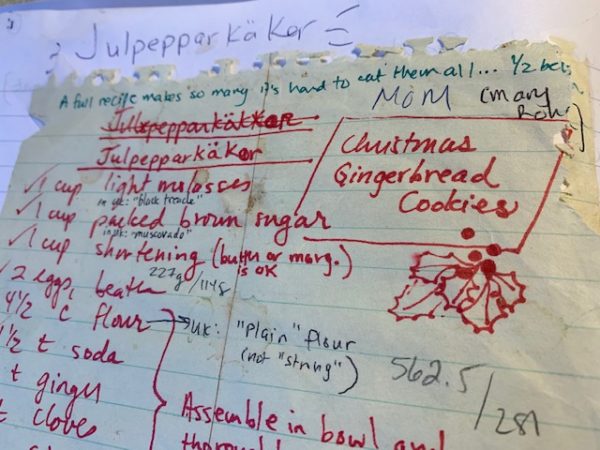 Julpepparkäkor
A full recipe makes so many it's hard to eat them all... 1/2 bet
MOM (Mary
Row)
Julpepparkäkkor
Julpepparkäkor
Christmas
Gingerbread
Cookies
✓ 1 cup light molasses
in UK: "black treacle"
✓ 1 cup packed brown sugar
in UK: "muscovado"
✓ 1 cup shortening (butter or marg.)
is OK
227g/114g
✓ 2 eggs, beaten
4½ c flour → UK: "plain" flour
(not "strong")
1½ t soda
t ginger
t cloves
562.5/281
Assemble in bowl and